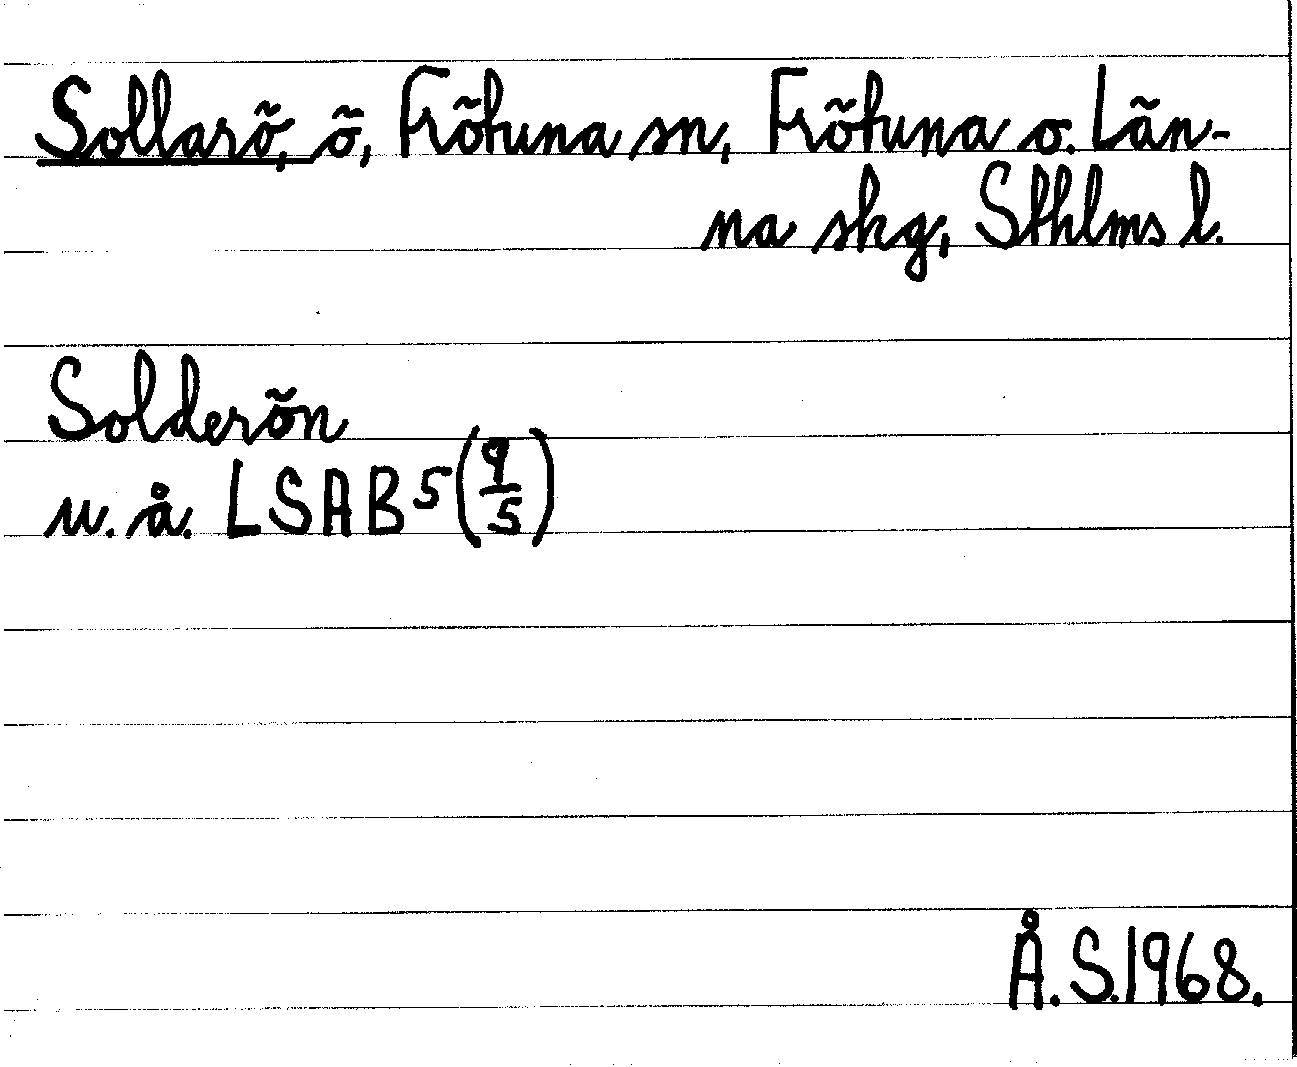 Sollarö, ö, Frötuna sn, Frötuna o. Län-
na skg, Sthlms l.
Solderön
u. å. LSA B5 (9/5)
Å.S. 1968.